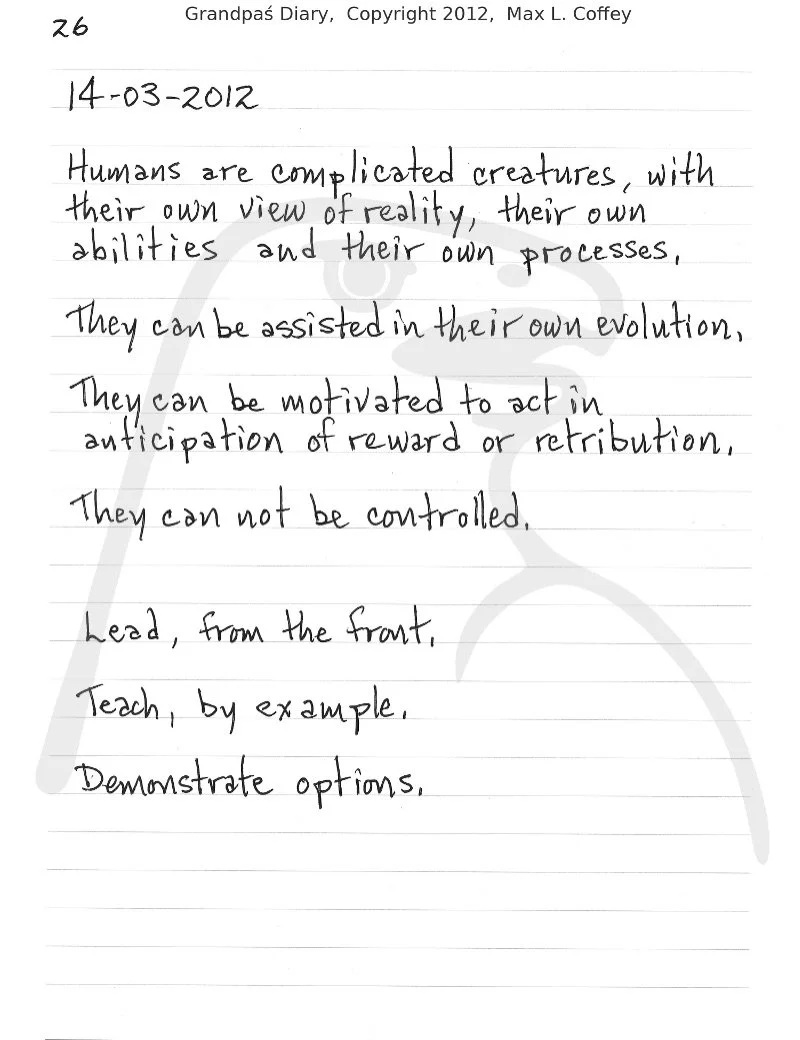 Grandpaś Diary, Copyright 2012, Max L. Coffey
26
14-03-2012
Humans are complicated creatures, with
their own view of reality, their own
abilities and their own processes.
They can be assisted in their own evolution.
They can be motivated to act in
anticipation of reward or retribution.
They can not be controlled.
Lead, from the front.
Teach, by example.
Demonstrate options.